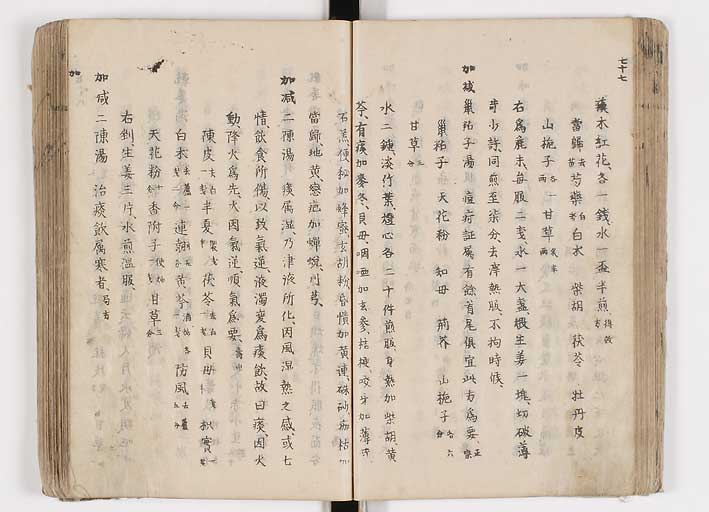 七十七
蘓木紅花、各一錢、水一盃半煎 得效方
當歸 去苗 芍藥 白 白朮 柴胡 茯苓 牡丹皮
山梔子 各一兩 甘草 半兩
右爲麁末每服二戔、水一大盞煨生姜一塊、切破薄
荷少許同煎至柒分、去滓熱服、不拘時候、
加減 梔子湯 痘疹証属有餘首尾俱宜此方爲要、
梔子 天花粉 知母 荊芥 山梔子 各六分
甘草 三分
水二鍾淡竹葉、燈心各二十件煎服身熱加柴胡、黃
芩、有痰加麥冬、貝母、咽痛加玄參、桔梗、咬牙加薄荷
石羔便秘加蜂蜜、
當歸、地黃
加减二陳湯 痰属濕、乃津液所化、因風濕熱之感、或七
情飲食所傷、以致氣逆、液濁変爲痰飲、故曰痰、因火
動、降火爲先、火因氣逆、順氣爲要、
陳皮 半夏 茯苓 貝母 枳實
白朮 去蘆 連翹 黃芩 酒炒 防風 去蘆
天花粉 香附子 甘草 三分
右剉、生姜三片、水煎温服、
加减二陳湯 治痰飲属寒者、
加